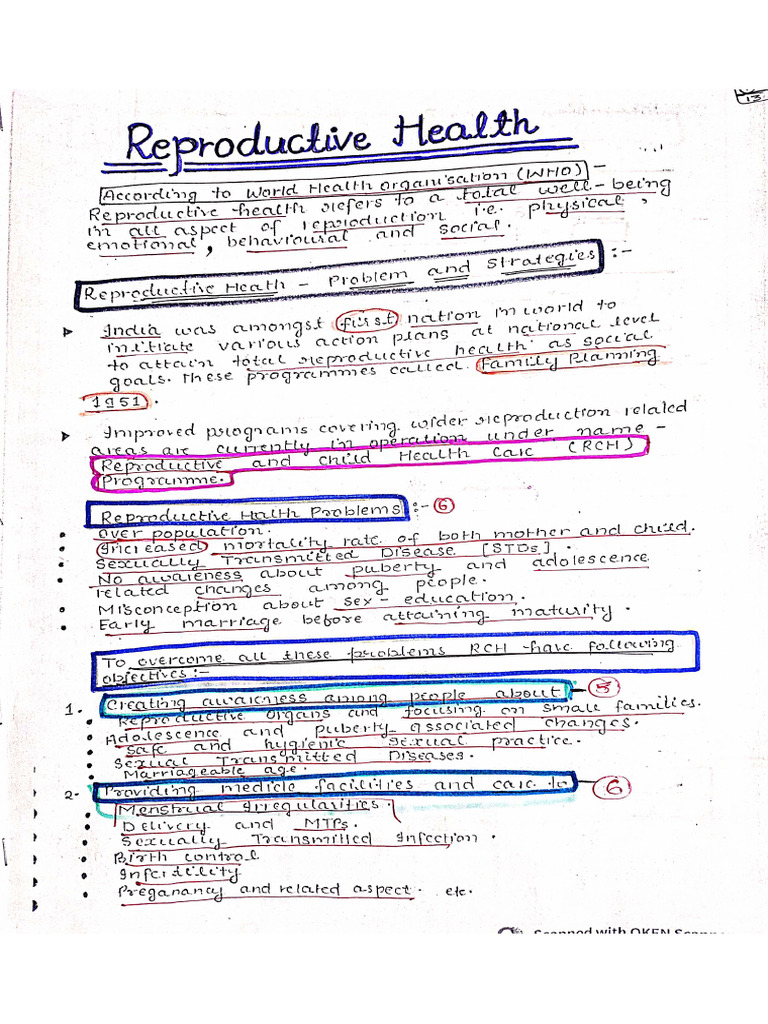 13
Reproductive Health
According to World Health Organisation (WHO) –
Reproductive health refers to a total well-being
in all aspect of reproduction i.e. physical,
emotional, behavioural and social.
Reproductive Heath – Problem and Strategies :-
India was amongst first nation in world to
initiate various action plans at national level
to attain total reproductive health as social
goals. These programmes called Family Planning
1951.
Improved programs covering wider reproduction related
areas are currently in operation under name –
Reproductive and Child Health Care (RCH)
Programme.
Reproductive Health Problems :- 6
• Over population.
• Increased mortality rate of both mother and child.
• Sexually Transmitted Disease [STDs].
• No awareness about puberty and adolescence
related changes among people.
• Misconception about sex-education.
• Early marriage before attaining maturity.
To overcome all these problems RCH have following
objectives :-
1. Creating awareness among people about – 5
• Reproductive organs and focusing on small families.
• Adolescence and puberty associated changes.
• Safe and hygienic sexual practice.
• Sexual Transmitted Diseases.
• Marriageable age.
2- Providing medicle facilities and care to – 6
• Menstrual irregularities.
• Delivery and MTPs.
• Sexually Transmitted Infection.
• Birth control
• Infertility
• Preganancy and related aspect. etc.
Scanned with OKEN Scanner